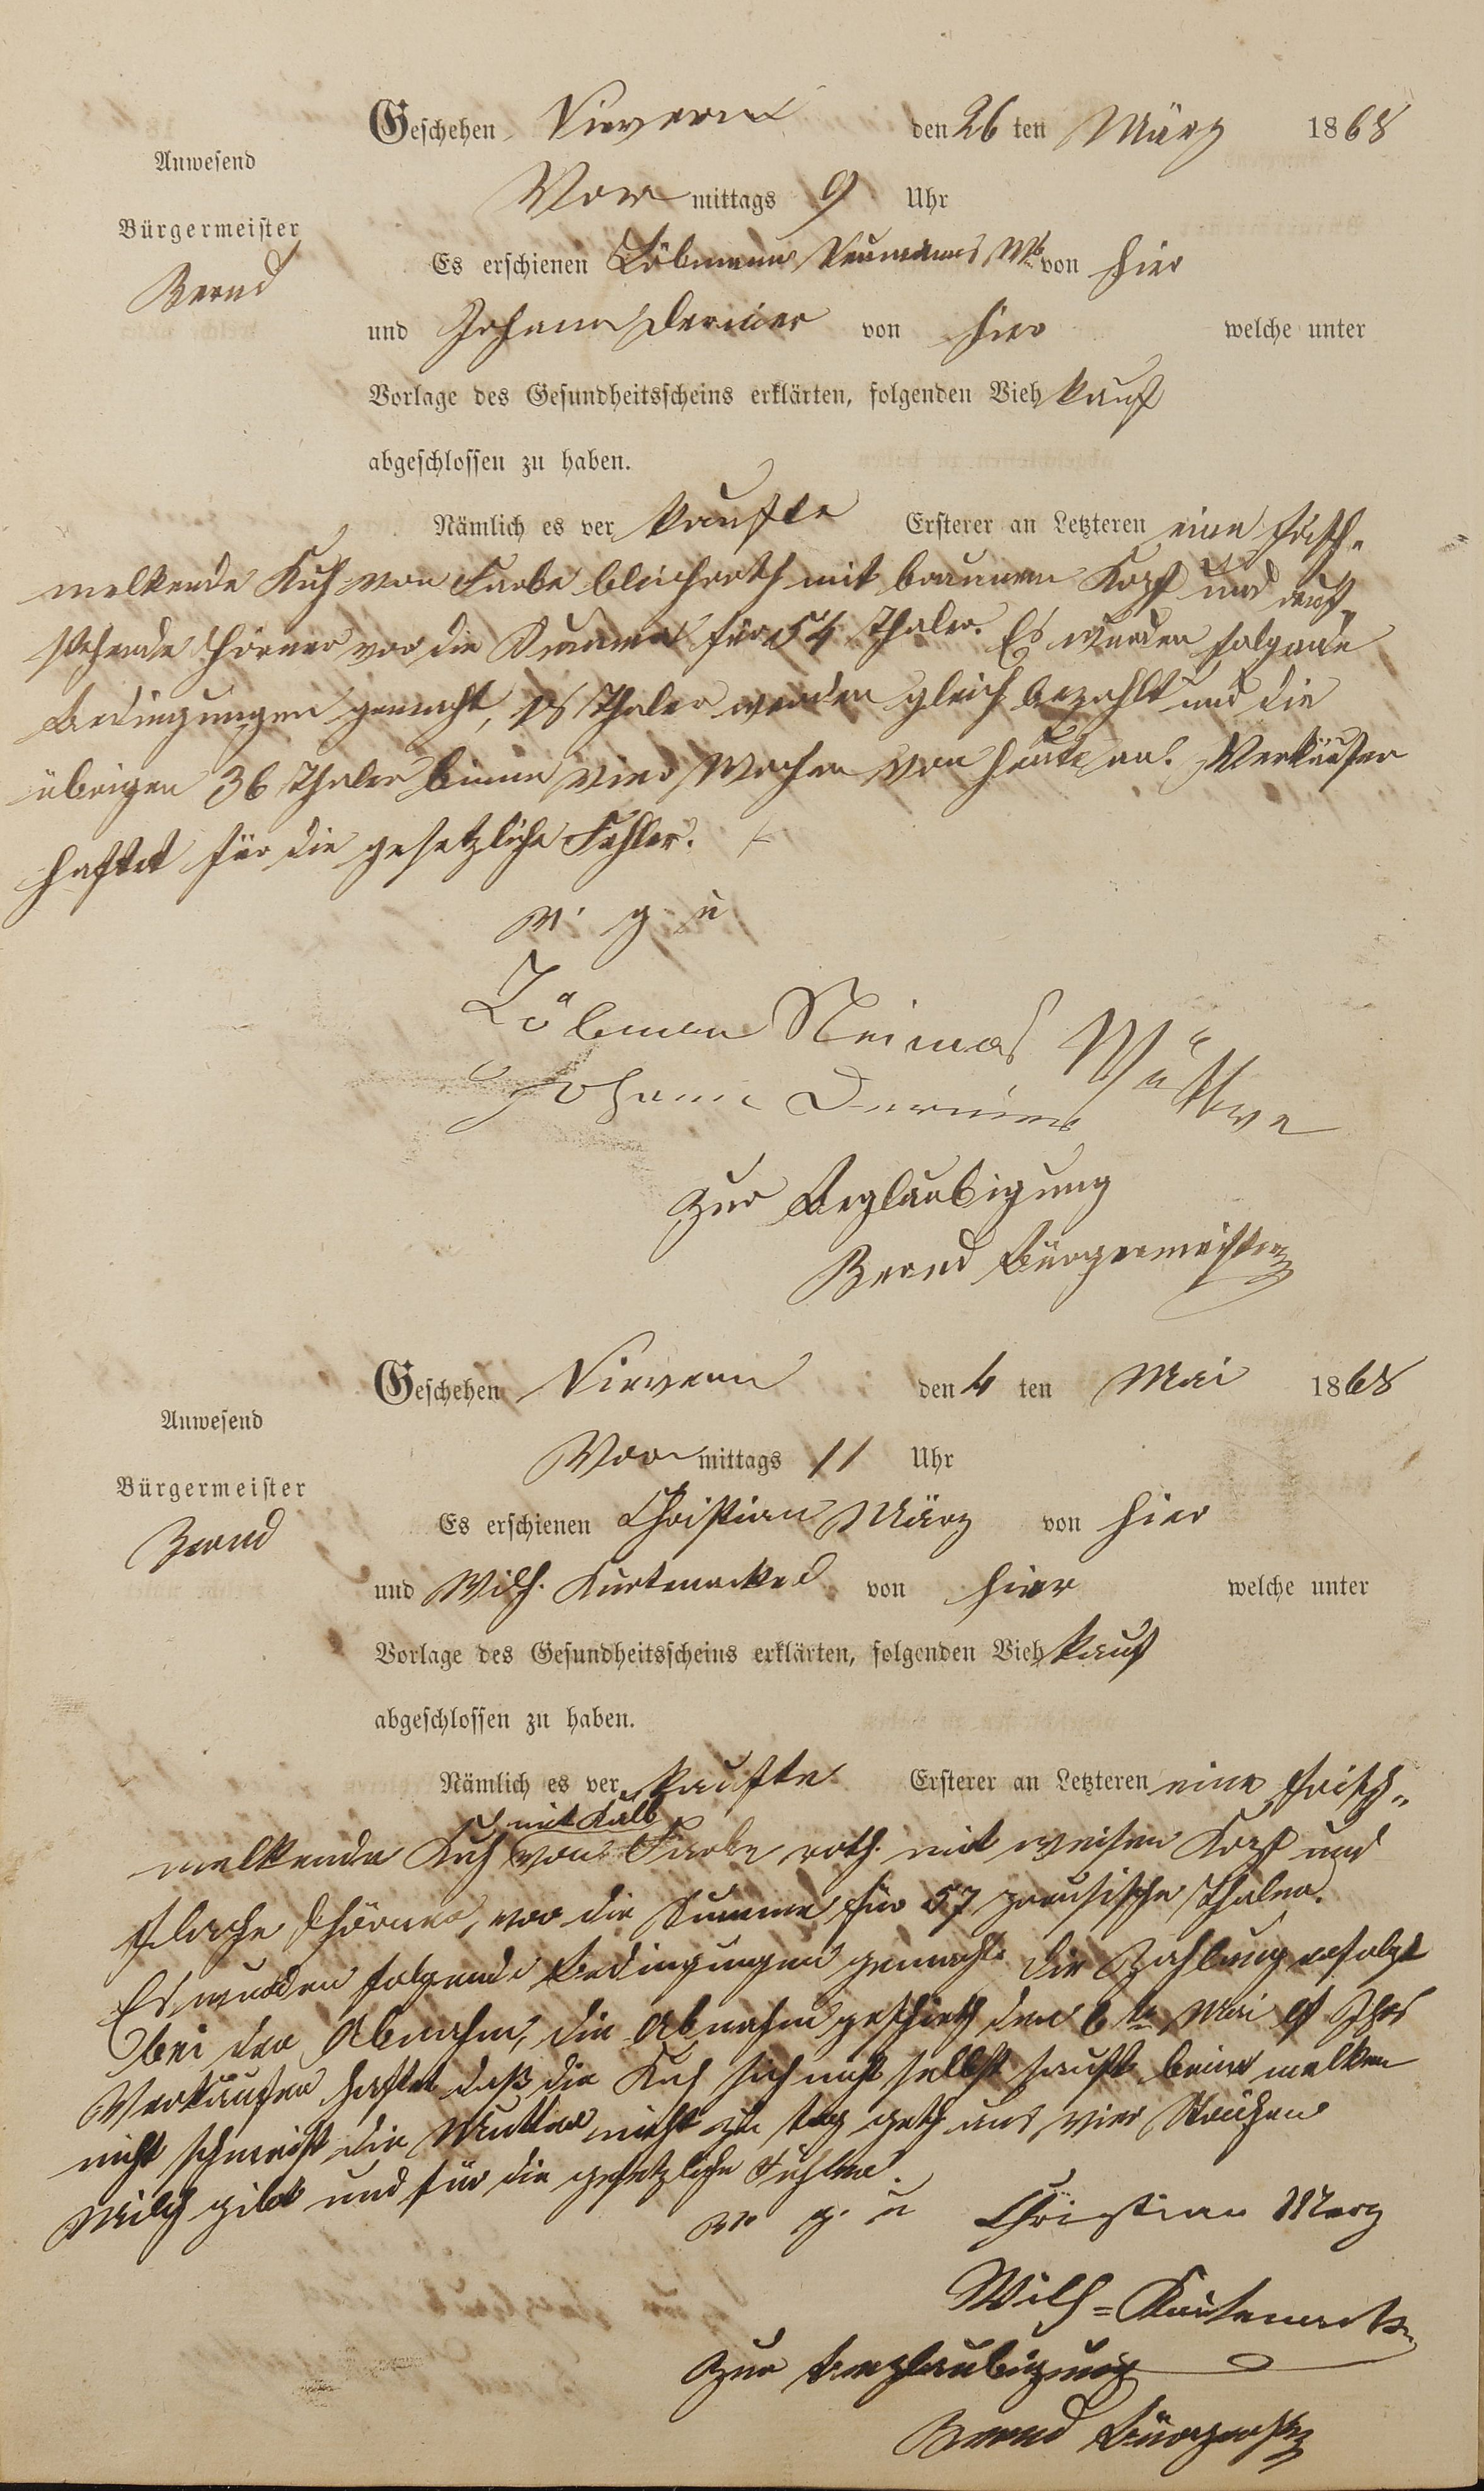 Geschehen Nievern den 26 ten März 1868
Anwesend
Vor mittags 9 Uhr
Bürgermeister
Bernd
Es erschienen Löbmann Neumanns Wb von hier
und Johann Dermer von hier welche unter
Vorlage des Gesundheitsscheins erklärten, folgenden Vieh kauf
abgeschlossen zu haben.
Nämlich es ver kaufte Ersterer an Letzteren eine frisch-
melkende Kuh von Farbe bleichroth mit braunem Kopf und auf-
stehende Hörner vor die Summa für 54 Thaler. Es wurden folgende
Bedingungen gemacht, 18 Thaler werden gleich bezahlt und die
übrigen 36 Thaler binnen vier Wochen von heute an. Verkäufer
haftet für die gesetzliche Fehler.
v. g. u
Löbman Neimas Wittwe
Johann Dermer
Zur Beglaubigung
Bernd Bürgermeister
Geschehen Nievern den 4 ten Mai 1868
Anwesend
Vor mittags 11 Uhr
Bürgermeister
Bernd
Es erschienen Christian März von hier
und Wilh. Kurtenacker von hier welche unter
Vorlage des Gesundheitsscheins erklärten, folgenden Vieh kauf
abgeschlossen zu haben.
Nämlich es ver kaufte Ersterer an Letzteren eine frisch-
mit Kalb
melkende Kuh von Farbe roth mit weisen Kopf und
flache Hörner, vor die Summe für 57 preusische Thaler.
Es wurden folgende Bedingungen gemacht. Die Zahlung erfolgt
bei der Abnahme, die Abnahme geschieth den 6 ten Mai
Verkäufer haftet daß die Kuh sich nicht selbst sauft beim melken
nicht schmeist die Mutter nicht zu tag geth aus vier Strichen
Milch gibt und für die gesetzliche Fehler.
v. g. u Christian Merz
Wilh = Kurtenacker
Zur Beglaubigung
Bernd Bürgermstr